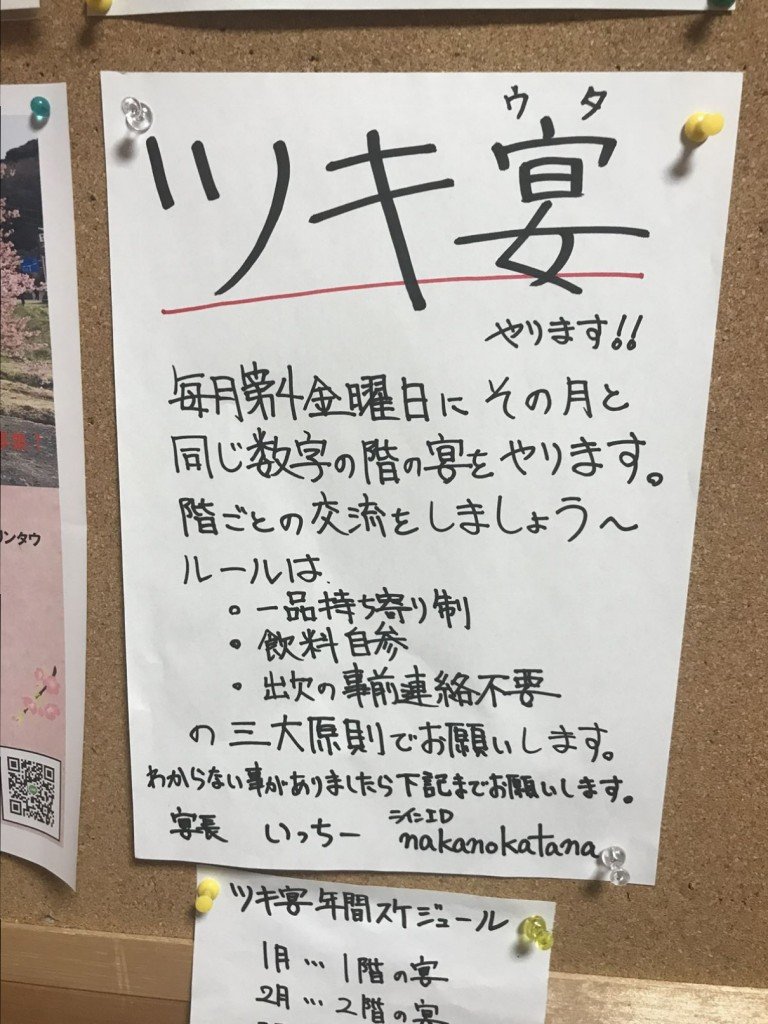 ウタ
ツキ宴
やります!!
毎月第4金曜日にその月と
同じ数字の階の宴をやります。
階ごとの交流をしましょう〜
ルールは
・一品持ち寄り制
・飲料自参
・出欠の事前連絡不要
の三大原則でお願いします。
わからない事がありましたら下記までお願いします。
宴長 いっちー nakanokatana
ツキ宴年間スケジュール
1月…1階の宴
2月…2階の宴
リンタウ